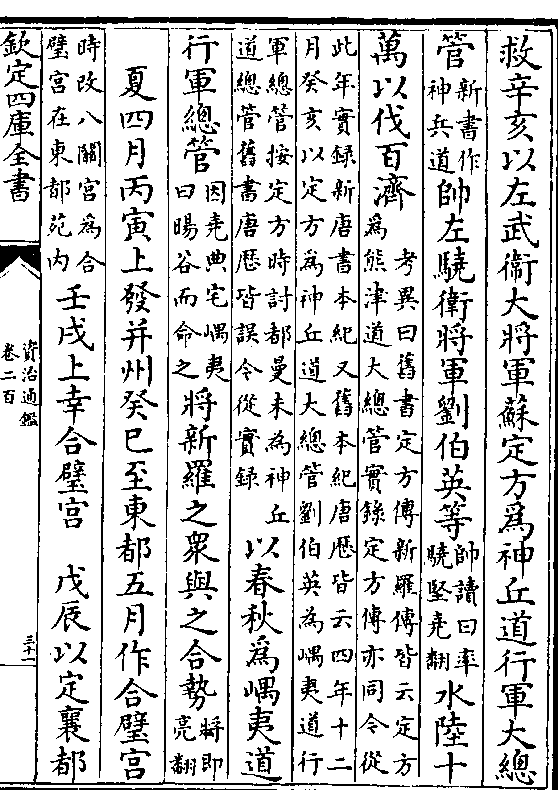 救辛亥以左武衞大將軍蘇定方爲神丘道行軍大總
管新書作神兵道帥左驍衛將軍劉伯英等帥讀曰率驍堅堯翻水陸十
萬以伐百濟考異曰舊書定方傳新羅傳皆云定方為熊津道大總管實錄定方傳亦同今從
此年實録新唐書本紀又舊本紀唐厯皆云四年十二月癸亥以定方為神丘道大總管劉伯英為嵎夷道行
軍總管按定方時討都曼未為神丘道總管舊書唐厯皆誤今從實録以春秋爲嵎夷道
行軍總管因堯典宅嵎夷曰暘谷而命之將新羅之衆與之合勢將即亮翻
夏四月丙寅上發并州癸巳至東都五月作合璧宫
時改八關宫為合璧宫在東都苑内壬戌上幸合璧宫　戊辰以定襄都
欽定四庫全書
資治通鑑
卷二百
三十一